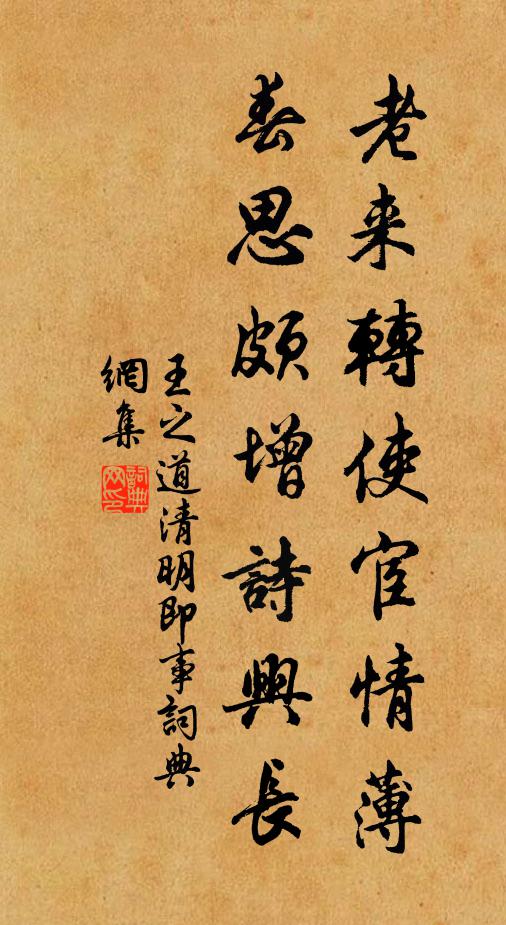 老来轉使宦情薄
春思頗增詩興長
王之道清明即事詞典
網集
詞典
网印